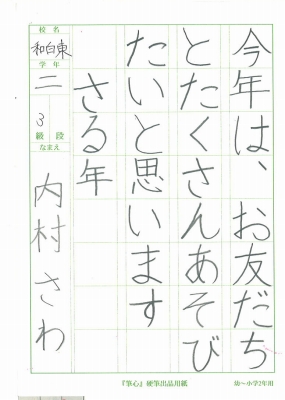 今年は、お友だち
とたくさんあそび
たいと思います
さる年
校名
和白東
学年
二
3
級 段
なまえ
内村さわ
『筆心』硬筆出品用紙
幼〜小学2年用